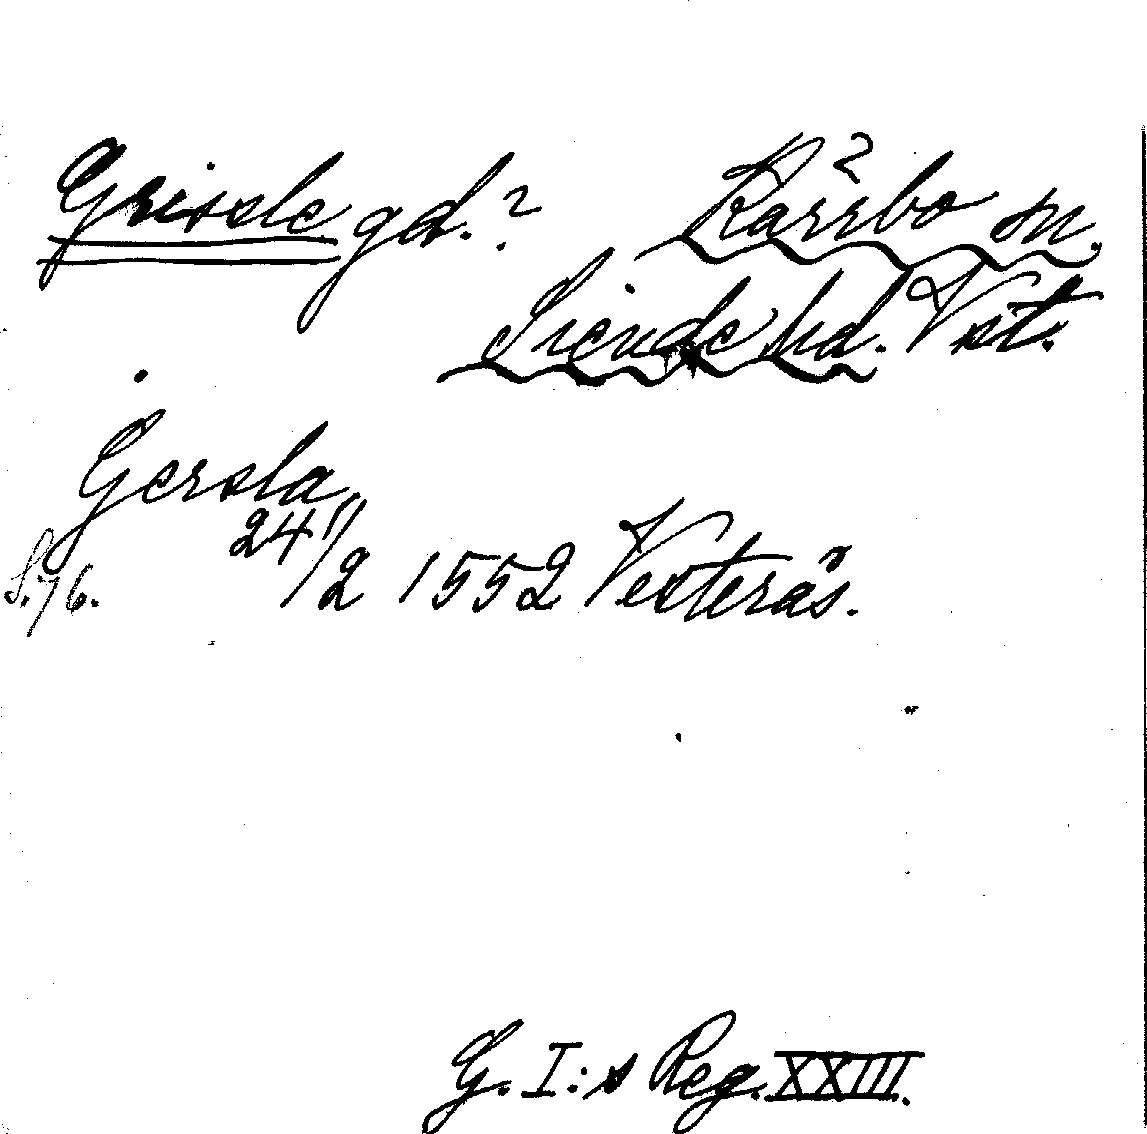 Grissle gd.? Kärrbo sn.
Siende hd. Vst.
Gersla
S. 76. 24/2 1552 Vesterås.
G. I:s Reg. XXIII.